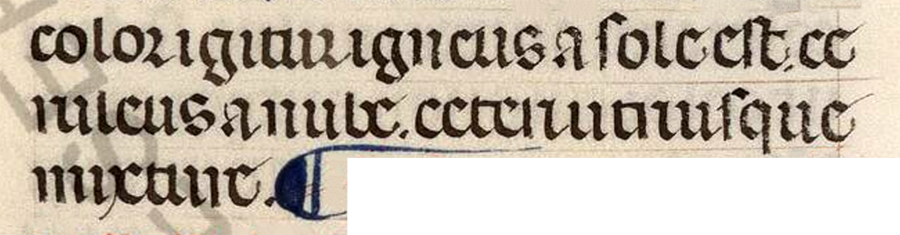 color igitur igneus a sole est. ce
ruleus a nube. ceteri utriusque
mixture.